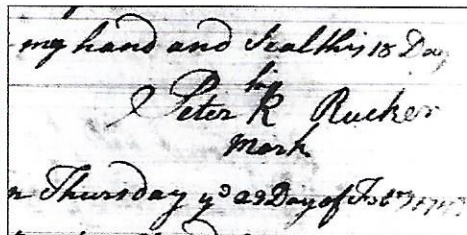 my hand and Seal this 18 Day
his
Peter R Rucker
mark
Thursday yᵉ 23 Day of